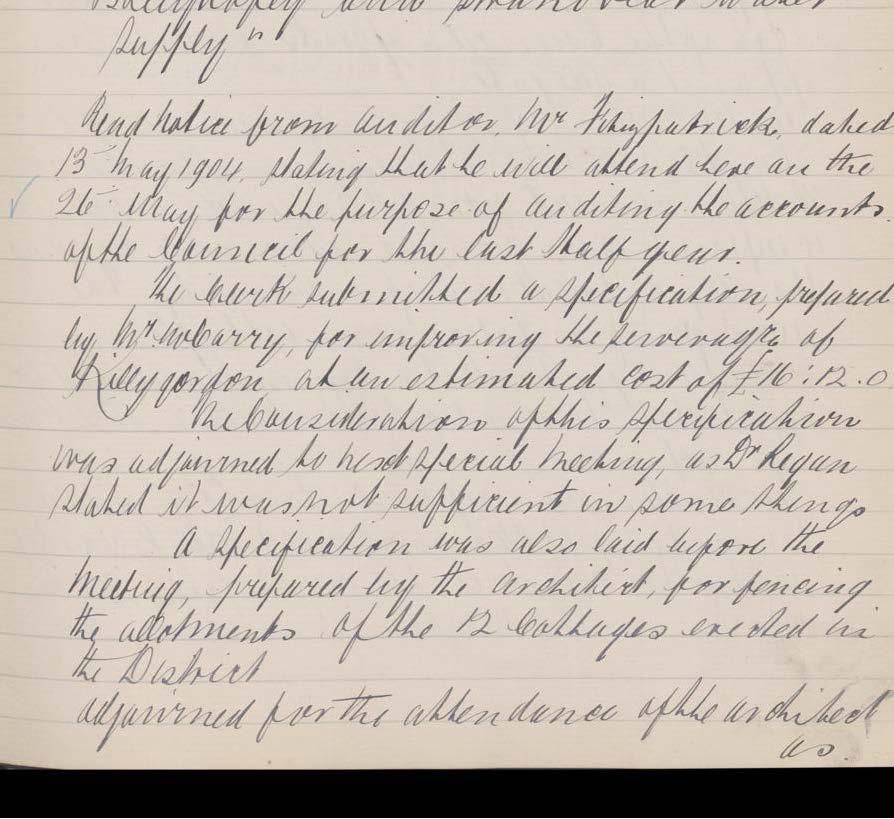 Ballybofey and Stranorlar Water
supply"
Read Notice from Auditor, Mr Fitzpatrick, dated
13th May 1904, stating that he will attend here on the
26th May for the purpose of auditing the accounts
of the Council for the last Half year.
The Clerk submitted a specification, prepared
by Mr McCarry, for improving the sewerage of
Killygordon at an estimated cost of £16:12.0
The Consideration of this specification
was adjourned to next special Meeting, as Dr Regan
stated it was not sufficient in some things
A specification was also laid before the
Meeting, prepared by the Architect, for fencing
the allotments of the 12 Cottages erected in
the District
adjourned for the attendance of the architect
as